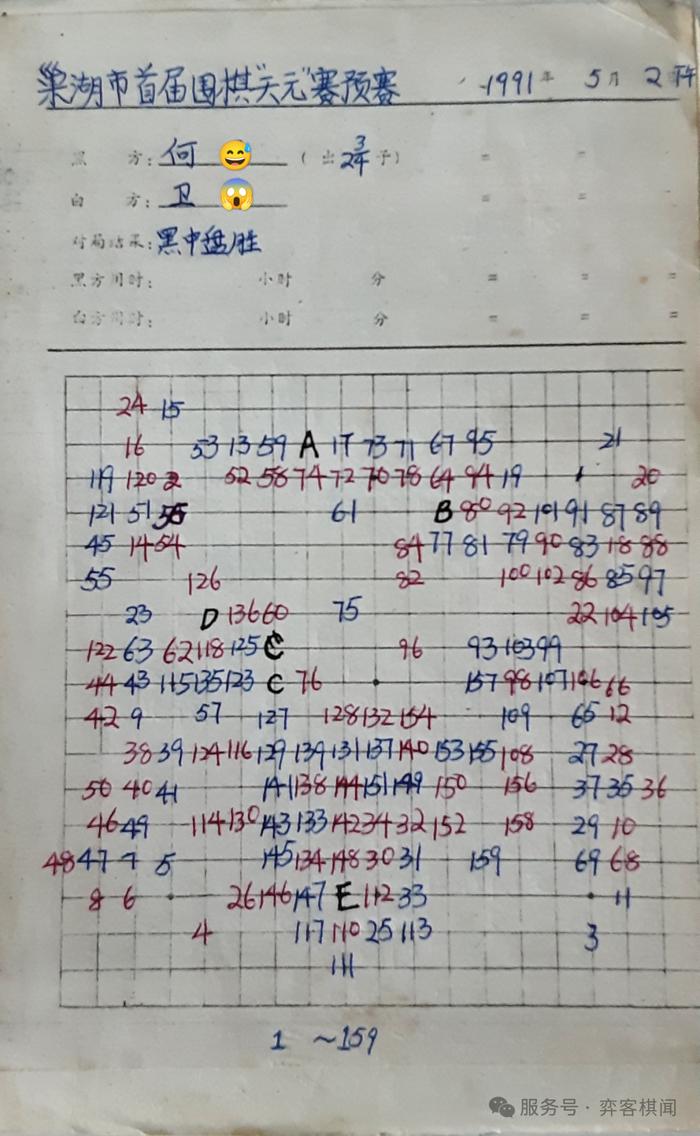 巢湖市首届围棋"天元"赛预赛 1991年 5月 2
黑 方: 何 (出 3 24 子) =  =  =
白 方: 卫 =  =  =
对局结果: 黑中盘胜
黑方用时: 小时 分 =  =  =
白方用时: 小时 分 =  =  =
24 15
16 53 13 59 A 17 73 71 67 95 21
119 120 2 52 58 74 72 70 78 64 94 19 1 20
121 51 61 B 80 92 101 91 87 89
45 14 54 84 77 81 79 90 83 18 88
55 126 82 100 102 86 85 97
23 D 136 60 75 22 104 105
122 63 62 118 125 C 96 93 103 99
44 43 115 135 123 C 76 157 98 107 106 66
42 9 57 127 128 132 154 109 65 12
38 39 124 116 129 139 131 137 140 153 155 108 27 28
50 40 41 141 138 144 151 149 150 156 37 35 36
46 49 114 130 143 133 142 34 32 152 158 29 10
48 47 7 5 145 134 148 30 31 159 69 68
8 6 26 146 147 E 112 33 11
4 117 110 25 113 3
111
1 ~159
服务号·弈客棋闻